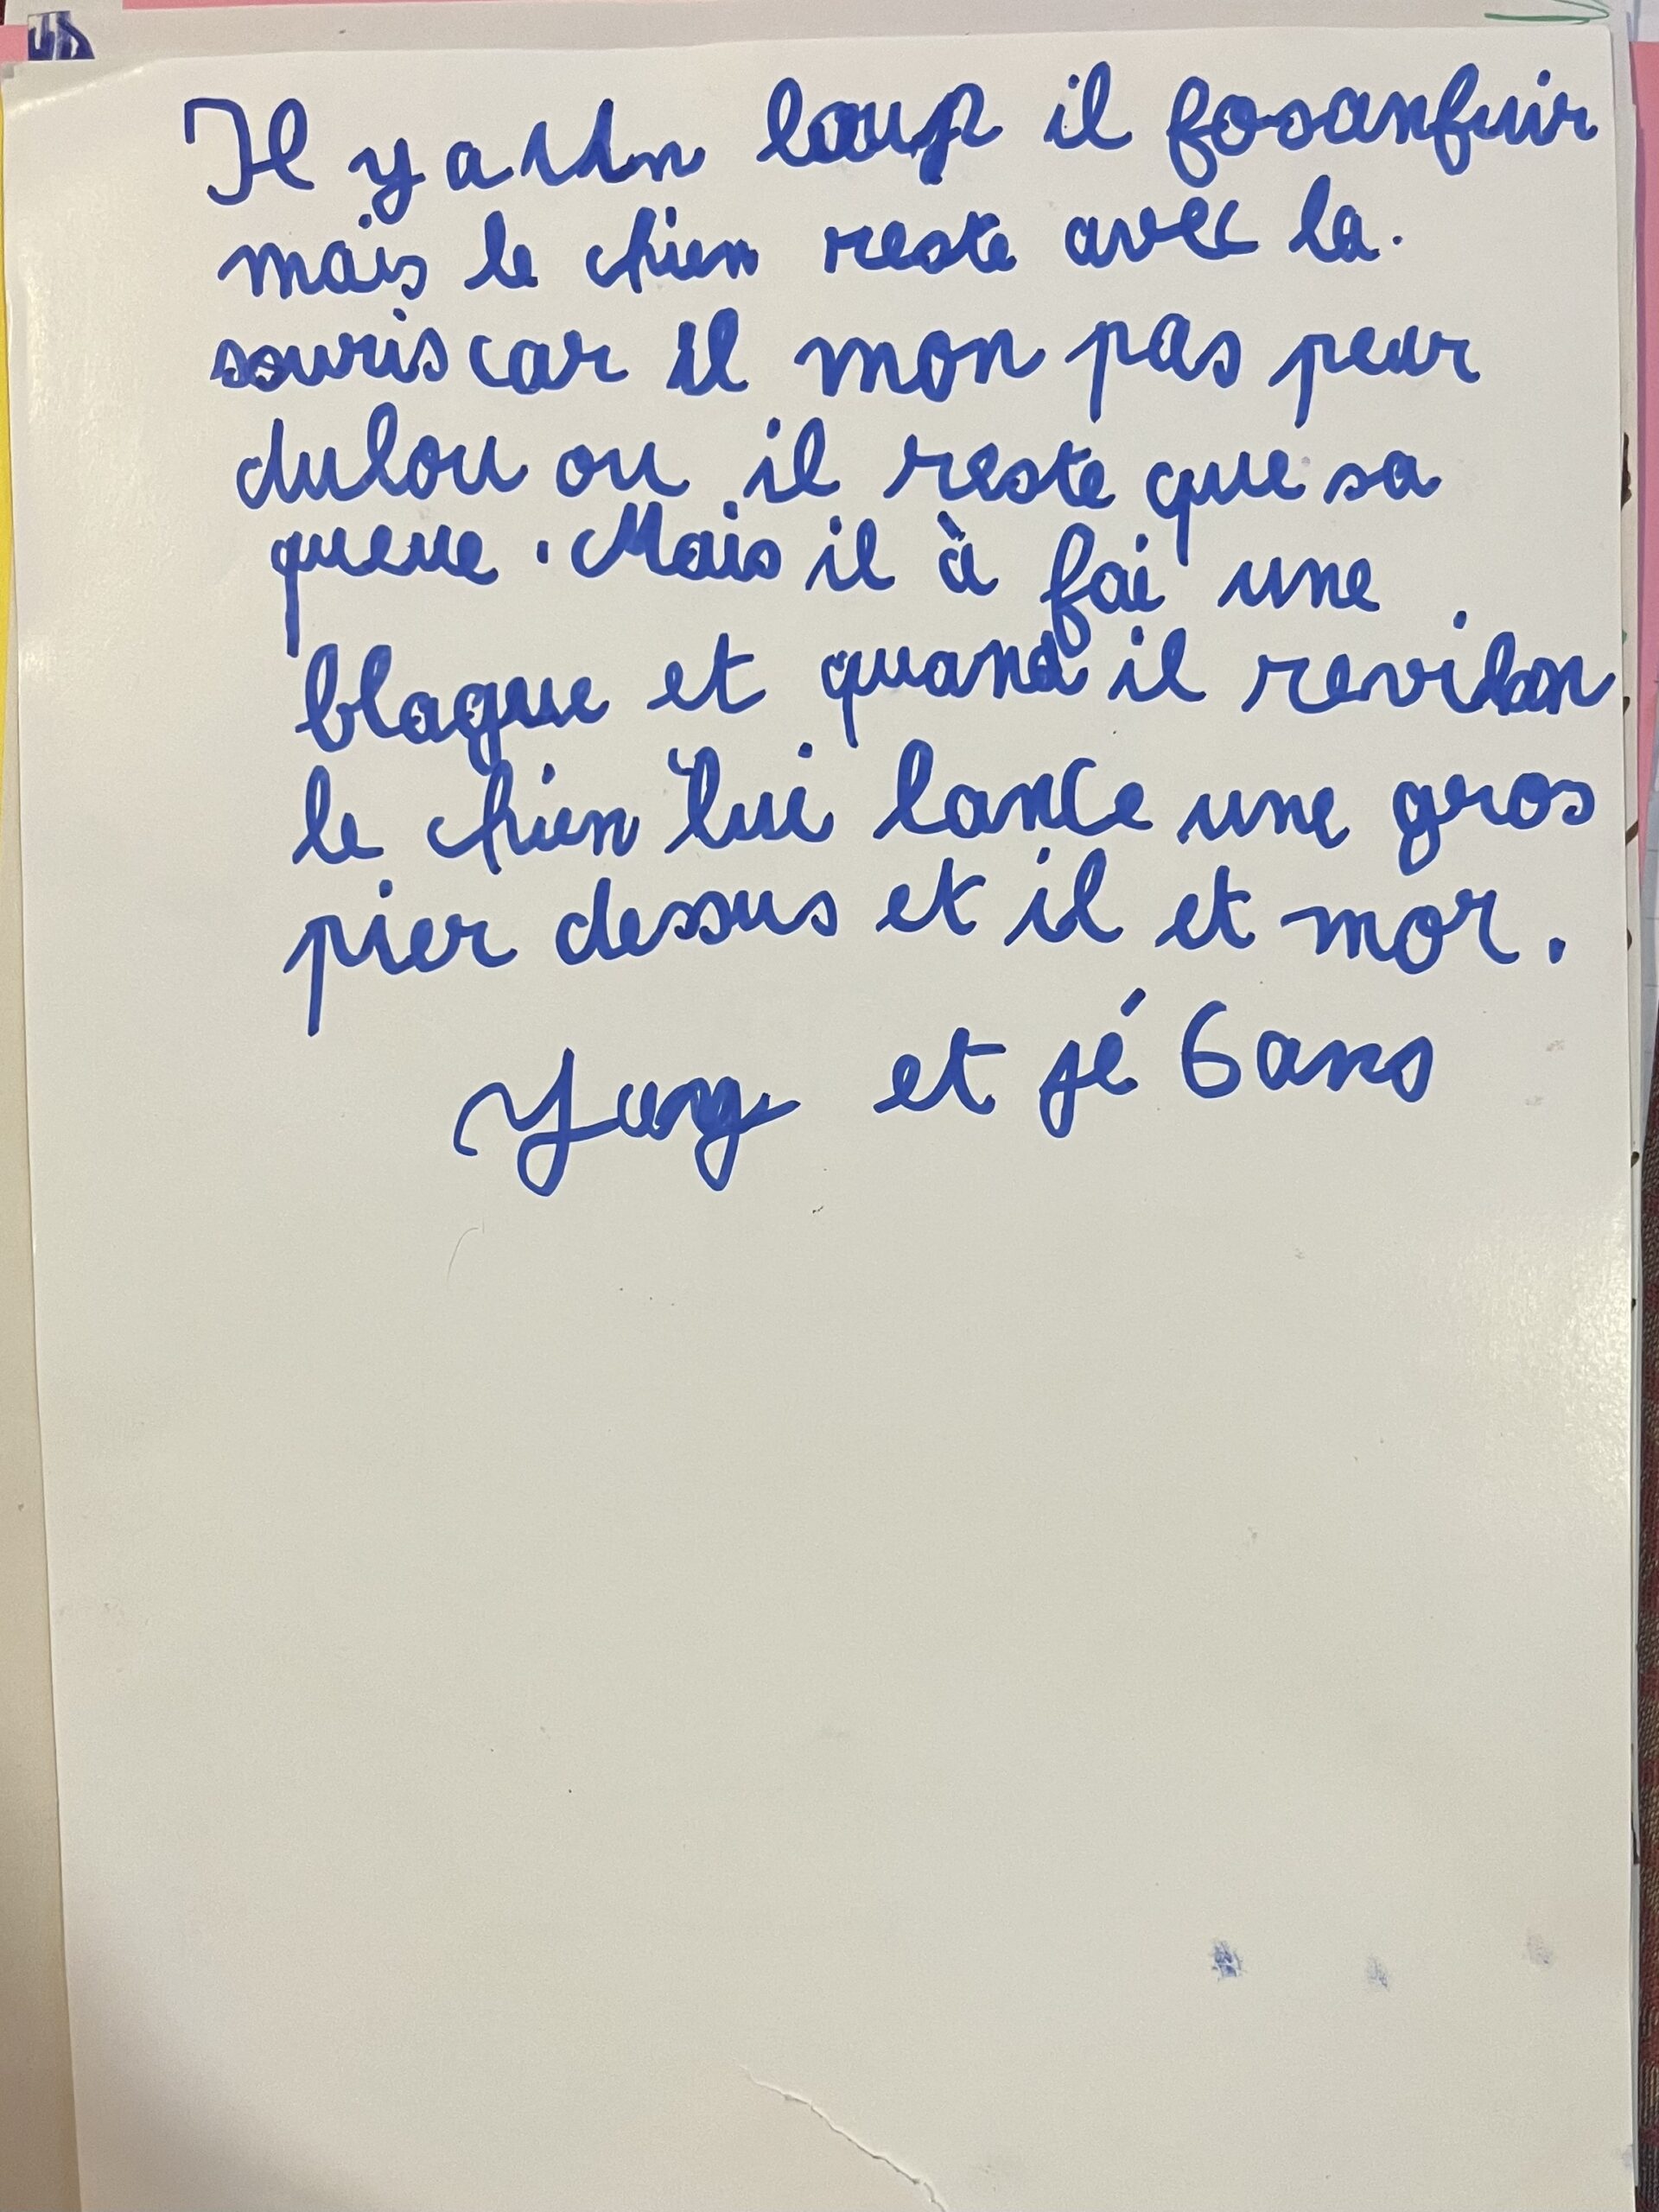 Il y a Un loup il fosanfuir
mais le chien reste avec la.
souris car il mon pas peur
dulou ou il reste que sa
queue. Mais il à fai une
blague et quand il
le chien lui lance une gros
pier dessus et il et mor.
et jé 6 ans